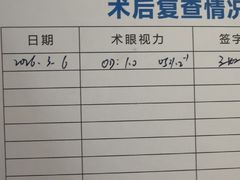 术后复查情况
日期 术眼视力 签字
2026.3.6 OD: 1.0 OS 1.2⁻¹